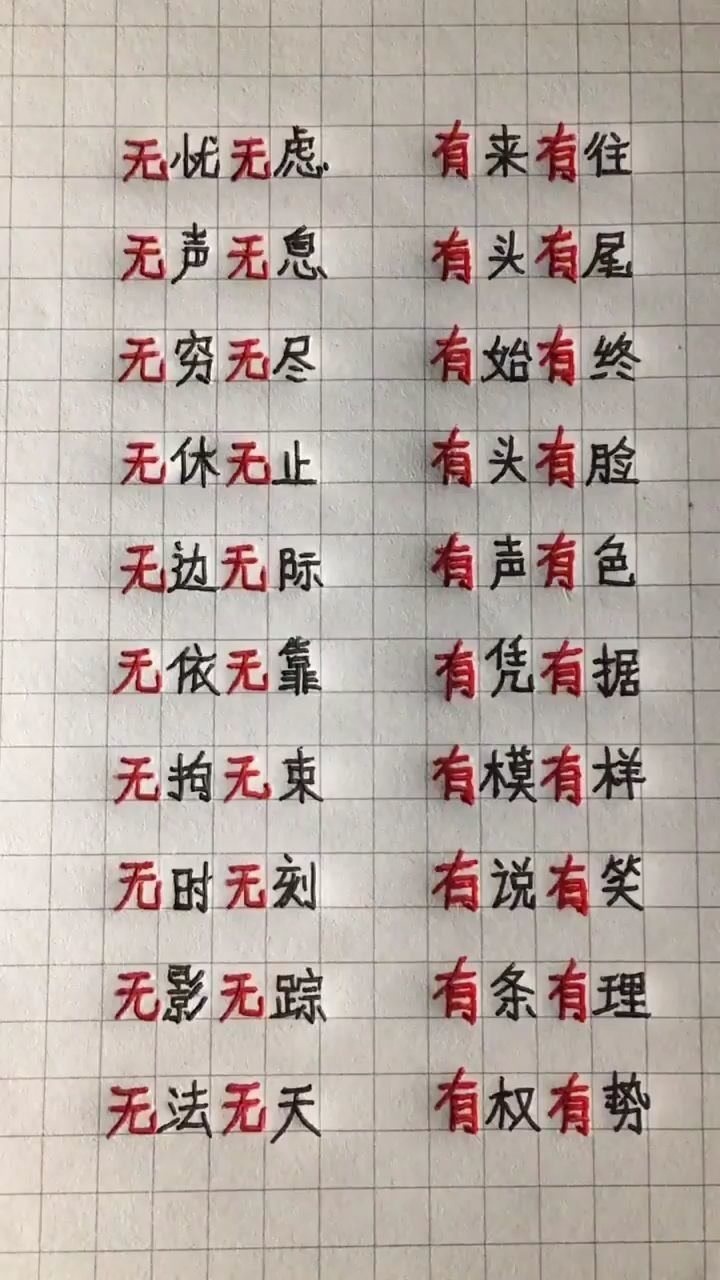 无忧无虑 有来有往
无声无息 有头有尾
无穷无尽 有始有终
无休无止 有头有脸
无边无际 有声有色
无依无靠 有凭有据
无拘无束 有模有样
无时无刻 有说有笑
无影无踪 有条有理
无法无天 有权有势